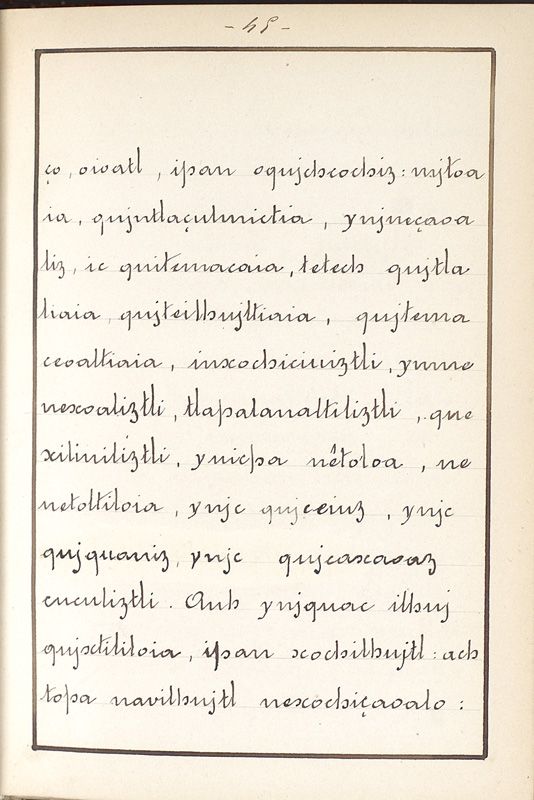 - 45 -
ço, oioatl, ipan oqujchcochiz: mjtoa
ia, qujntlaçulmictia, ynjneçaoa
liz, ic quitemacaia, tetech qujtla
liaia, qujteilhujltiaia, qujtema
ceoaltiaia, inxochiciuiztli, ynme
nexoaliztli, tlapalanaltiliztli, que
xiliuiliztli, ynicpa nêtoloa, ne
netoltiloia, ynjc qujceiuz, ynjc
qujquaniz, ynjc qujcaxaoaz
cuculiztli. Auh ynjquac ilhuj
qujxtililoia, ipan xochilhujtl: ach
topa navilhujtl nexochiçaoalo: